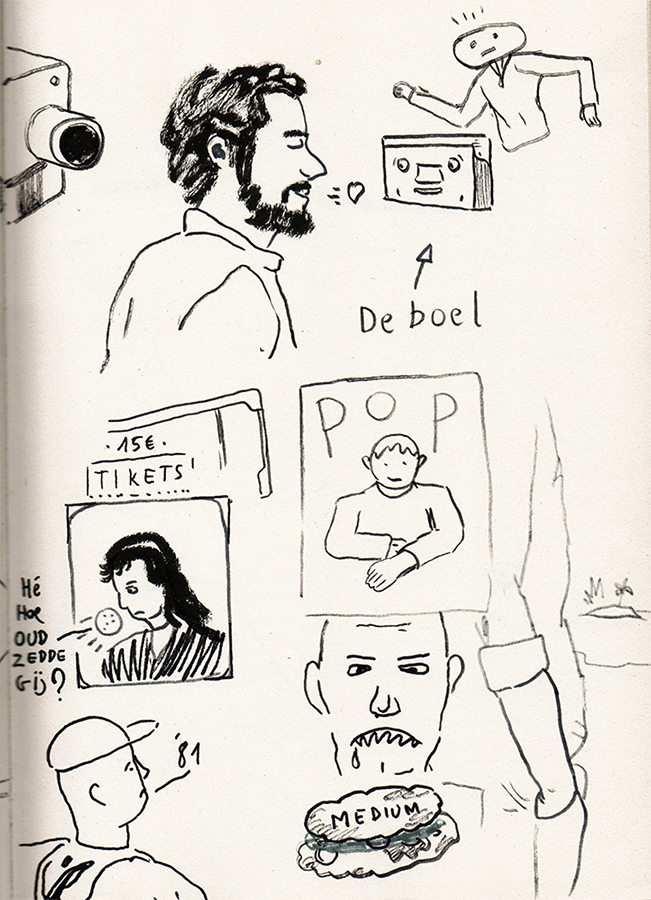 De boel
·15€·
TIKETS
POP
Hé
Hoe
OUD
ZEDDE
Gij?
'81
MEDIUM